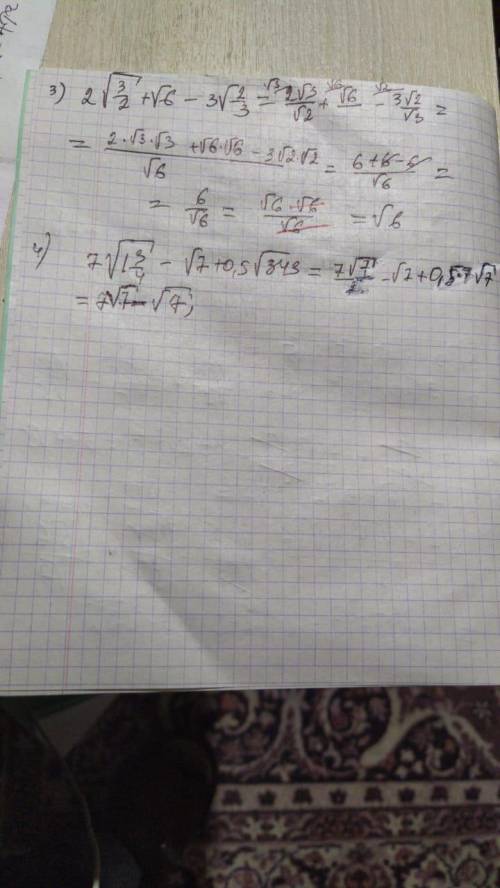 3) 2√(3/2) + √6 − 3√(2/3) = 2√3/√2 + √6 − 3√2/√3 =
= (2·√3·√3 + √6·√6 − 3√2·√2)/√6 = (6+6−6)/√6 =
= 6/√6 = √6·√6/√6 = √6
4) 7√(1 3/4) − √7 + 0,5√343 = 7√7/2 − √7 + 0,5·7√7
= 7√7 − √7;